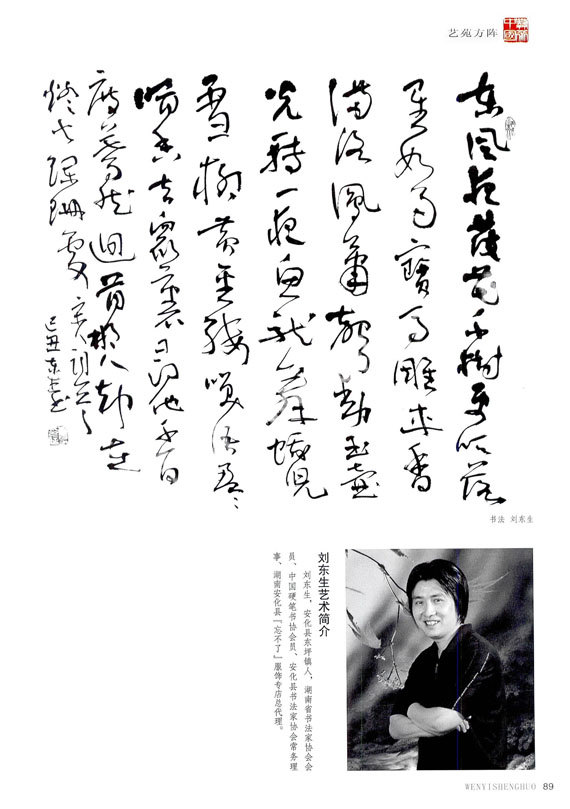 艺苑方阵
东风夜放花千樹更吹落
星如雨寶马雕車香
满路鳳箫聲動玉壶
光转一夜鱼龙舞蛾兒
雪柳黄金缕笑语盈盈
暗香去众里寻他千百
度蓦然迴首那人却在
灯火阑珊處
己丑东生书
书法 刘东生
刘东生艺术简介
刘东生，安化县东坪镇人，湖南省书法家协会会
员、中国硬笔书协会员、安化县书法家协会常务理
事、湖南安化县『忘不了』服饰专店总代理。
WENYISHENGHUO 89